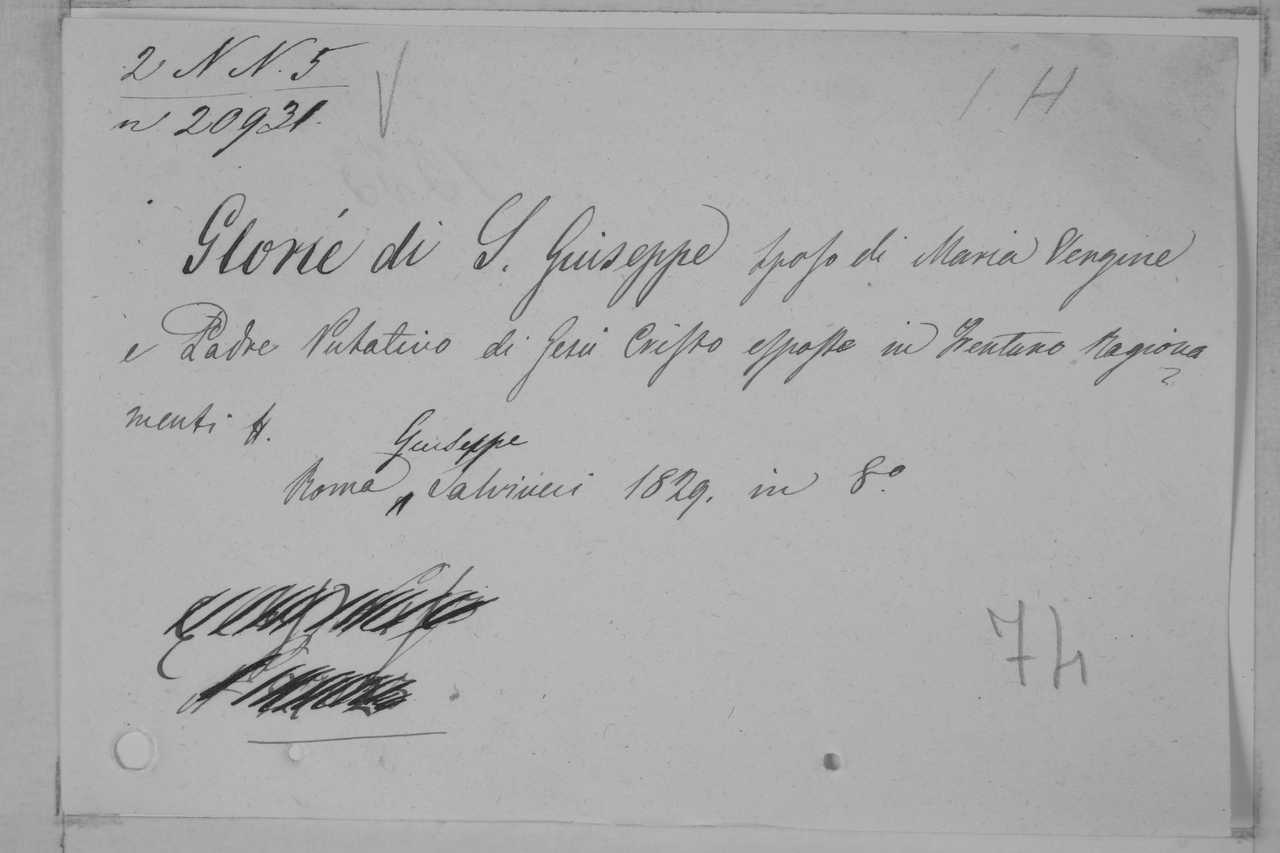 2 N N. 5
n 20931.
1 H
Glorie di S. Giuseppe sposo di Maria Vergine
e Padre Putativo di Gesù Cristo esposte in Trentuno Ragiona
menti
Giuseppe
Roma Salviucci 1829. in 8.º
74